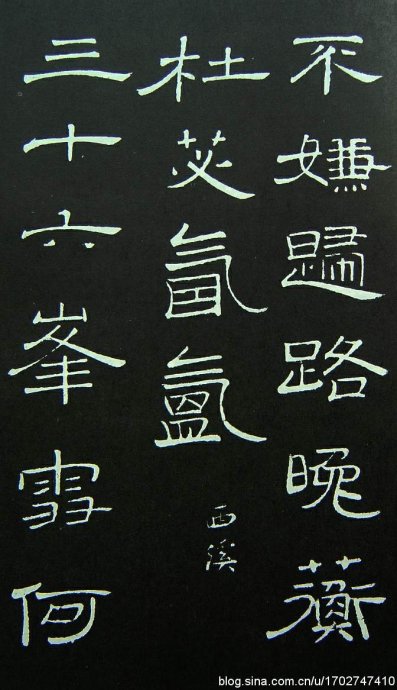 不嫌歸路晚蘅
杜苾氤氳
西溪
三十六峯雪何
blog.sina.com.cn/u/1702747410